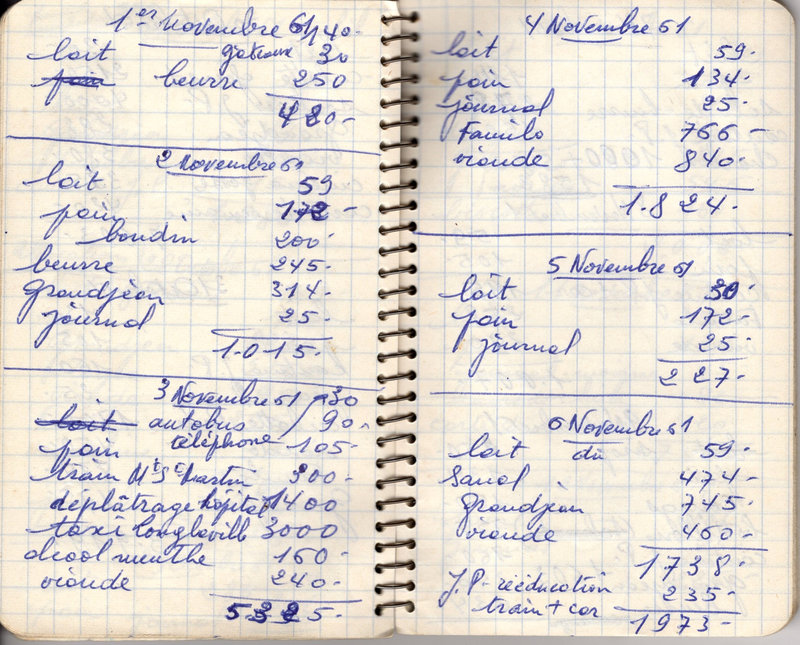 1er Novembre 61
gâteaux 140-
lait 30
pain beurre 250
420-
2 Novembre 61
lait 59
pain 172-
boudin 200
beurre 245-
grandjean 314-
journal 25-
1.015-
3 Novembre 61
téléphone 30
lait autobus 90-
pain 105-
train Mt St Martin 300-
déplâtrage hôpital 1400
taxi longlaville 3000
alcool menthe 160-
viande 240-
5325-
4 Novembre 61
lait 59-
pain 134-
journal 25-
Familo 766-
viande 840-
1.824-
5 Novembre 61
lait 30
pain 172-
journal 25-
227-
6 Novembre 61
lait du 59-
Sanal 474-
grandjean 745-
viande 460-
1738-
J.P- rééducation 235-
train + car
1973-